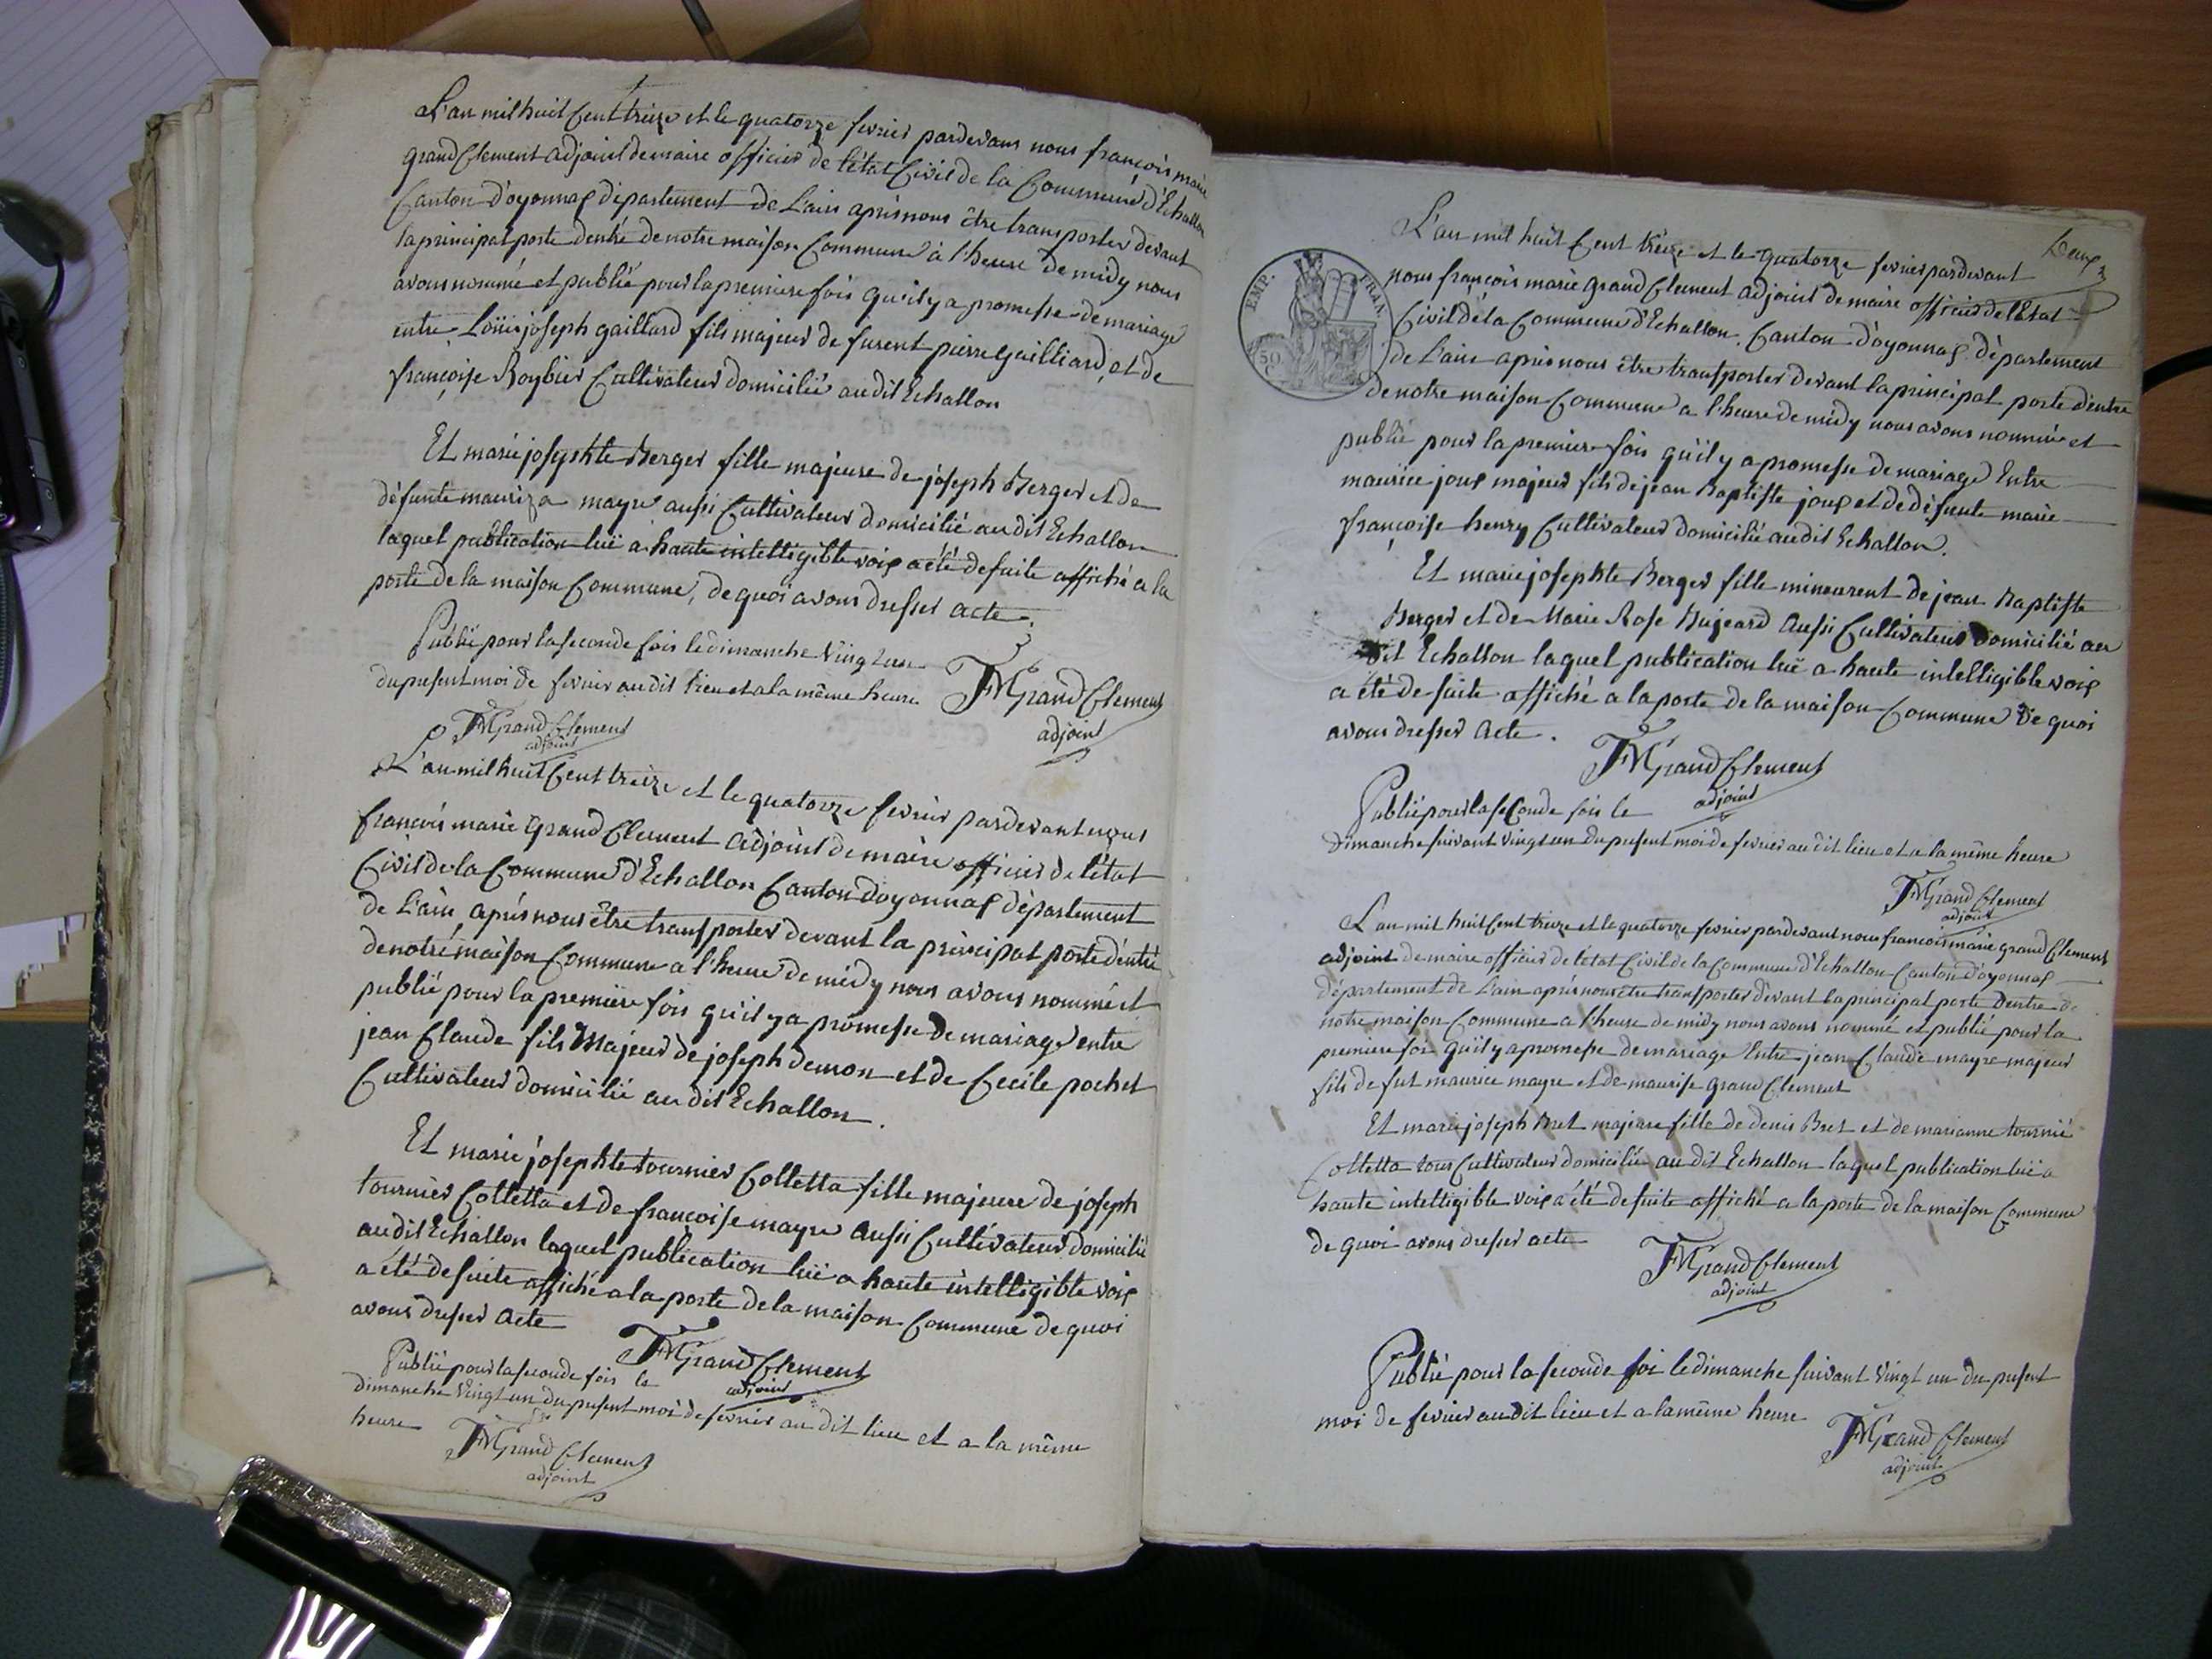 L'an mil huit Cent treize et le quatorze fevrier pardevans nous françois marie
grand Clement adjoint demaire officier de l'état Civil de la Commune d'Echallon
Canton d'oyonnax département de L'ain aprés nous être transporter devant
la principal porte dentré de notre maison Commune à l'heure de midy nous
avons nommé et publié pour la premiere fois qu'il y a promesse de mariage
entre Loüis joseph gaillard fils majeur de furent pierre gailliard, et de
françoise Roybier Cultivateur domicilié au dit Echallon
Et marie josephte Berger fille majeure de joseph Berger et de
défunte mauriza mayre aussi Cultivateur domicilié au dit Echallon
laquel publication luë à haute intelligible voix a été de suite affiché a la
porte de la maison Commune, de quoi avons dresser acte.
Publié pour la seconde fois le dimanche Vingt un
du present moi de fevrier au dit lieu et a la même heure
FMGrand Clement
adjoint
FMGrand Clement
adjoint
L'an mil huit Cent treize et le quatorze fevrier pardevant nous
françois marie grand Clement adjoint de maire officier de l'état
Civil de la Commune d'Echallon Canton d'oyonnax département
de L'ain, aprés nous être transporter devant la principal porte d'entré
de notre maison Commune a l'heure de midy nous avons nommé et
publié pour la premiere fois qu'il y a promesse de mariage entre
jean Claude fils Majeur de joseph demon et de Cecile pochet
Cultivateur domicilié au dit Echallon.
Et marie josephte tournier Colletta fille majeure de joseph
tournier Colletta et de françoise mayre aussi Cultivateur domicilié
au dit Echallon laquel publication luë a haute intelligible voix
a été de suite affiché a la porte de la maison Commune de quoi
avons dresser acte
FMGrand Clement
adjoint
Publié pour la seconde fois le
dimanche Vingt un du present moi de fevrier au dit lieu et a la même
heure
FMGrand Clement
adjoint
Deux
EMP. FRAN.
50
C
L'an mil huit Cent treize et le quatorze fevrier pardevant
nous françois marie grand Clement adjoint de maire officier de l'Etat
Civil de la Commune d'Echallon, Canton d'oyonnax département
de L'ain aprés nous être transporter devant la principal porte d'entre
de notre maison Commune a l'heure de midy nous avons nommé et
publié pour la premiere fois qu'il y a promesse de mariage Entre
maurice joux majeur fils de jean Baptiste joux et de défunte marie
françoise henry Cultivateur domicilié au dit Echallon.
Et marie josephte Berger fille mineurent de jean Baptiste
Berger et de Marie Rose Bujeard Aussi Cultivateur domicilié au
dit Echallon laquel publication luë a haute intelligible voix
a été de suite affiché a la porte de la maison Commune de quoi
avons dresser acte.
FMGrand Clement
adjoint
Publié pour la seConde fois le
dimanche suivant vingt un du present moi de fevrier au dit lieu et a la même heure
FMGrand Clement
adjoint
L'an mil huit Cent treize et le quatorze fevrier pardevant nous francois marie grand Clement
adjoint de maire officier de l'état Civil de la Commune d'Echallon Canton d'oyonnax
département de L'ain aprés nous etre transporter devant la principal porte dentre de
notre maison Commune a l'heure de midy nous avons nommé et publié pour la
premiere fois qu'il y a promesse de mariage Entre jean Claude mayre majeur
fils de fut maurice mayre et de maurise grand Clement
Et marie joseph Bret majeure fille de denis Bret et de marianne tournié
Colletta tous Cultivateur domicilié au dit Echallon laquel publication luë a
haute intelligible voix a été de suite affiché a la porte de la maison Commune
de quoi avons dresser acte
FMGrand Clement
adjoint
Publié pour la seconde foi le dimanche suivant Vingt un du present
moi de fevrier au dit lieu et a la même heure
FMGrand Clement
adjoint